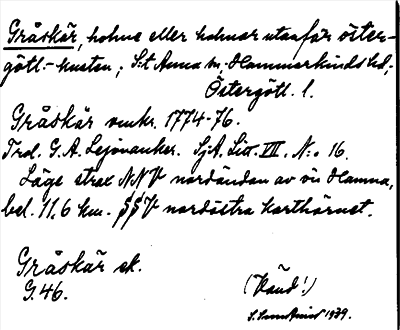 Gråskär, holme eller holmar utanför öster-
götl.-kusten; S:t Anna sn, Hammarkinds hd,
Östergötl. l.
Gråskär omkr. 1774-76.
Trol. G. A. Leijonancker. SjA. Litt. VII. N:o 16.
Läge strax NNV nordändan av ön Hamna,
bel. 11,6 km. SSV nordöstra karthörnet.
Gråskär ek.
G. 46.
(Känd!)
1939.